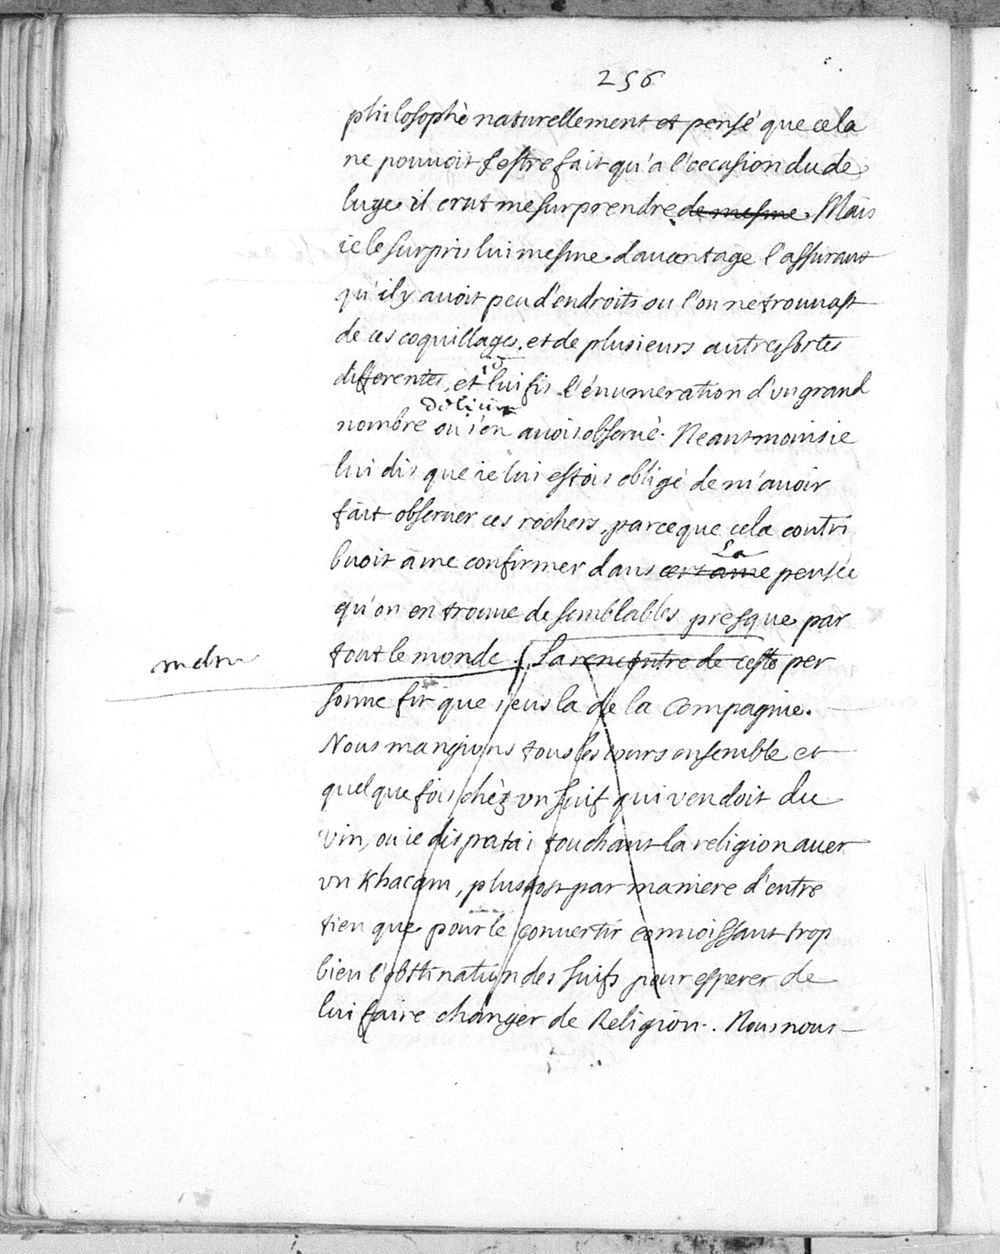 256
philosophé naturellement et pensé que cela
ne pouuoit s'estre fait qu'a l'occasion du de
luge, il crut me surprendre de mesme. Mais
ie le surpris lui mesme dauantage l'assurant
qu'il y auoit peu d'endroits ou l'on ne trouuast
de ces coquillages, et de plusieurs autres sortes
differentes, et lui fis l'énumeration d'un grand
de lieux
nombre ou i'en auois obserué. Neantmoins ie
lui dis que ie lui estois obligé de m'auoir
fait obseruer ces rochers, parce que cela contri
buoit à me confirmer dans la pensée
qu'on en trouue de semblables presque par
tout le monde. La rencontre de ceste per
sonne fit que i'eus la de la compagnie.
Nous mangions tous les iours ensemble et
quelque fois chez un Juif qui vendoit du
vin, ou ie disputai touchant la religion auec
un Khacam, plustost par maniere d'entre
tien que pour le conuertir connoissant trop
bien l'obstination des Juifs pour esperer de
lui faire changer de Religion. Nous nous